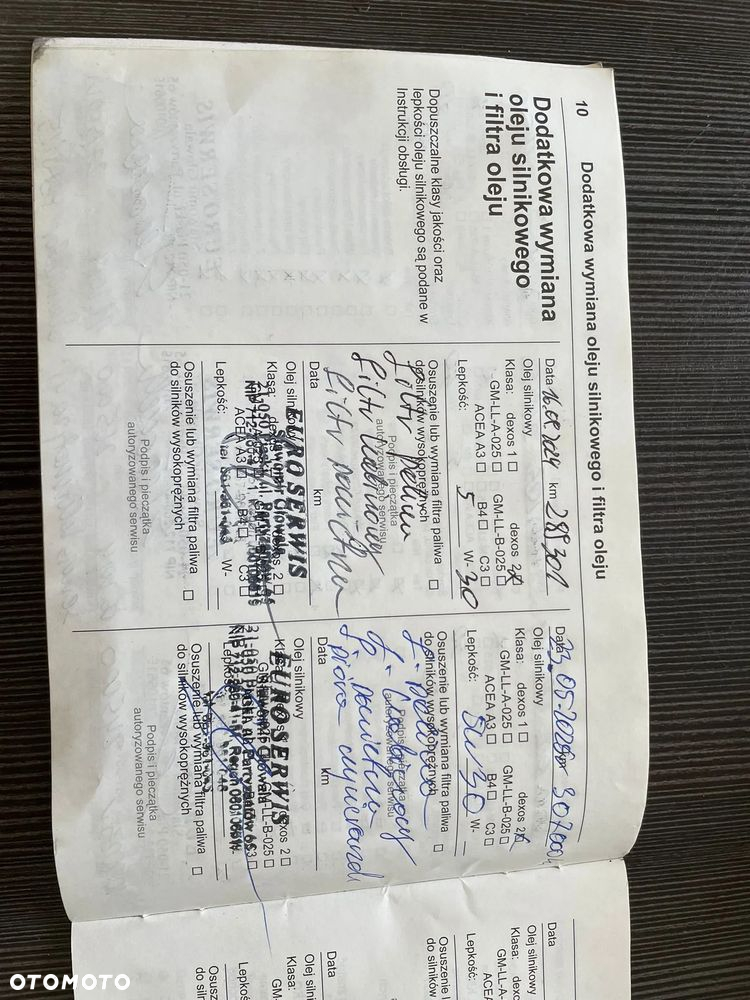 10
Dodatkowa wymiana oleju silnikowego i filtra oleju
Dodatkowa wymiana
oleju silnikowego
i filtra oleju
Dopuszczalne klasy jakości oraz
lepkości oleju silnikowego są podane w
Instrukcji obsługi.
Data 16.09.2024 km 289301
Olej silnikowy
Klasa: dexos 1 dexos 2 x
GM-LL-A-025 GM-LL-B-025
ACEA A3 B4 C3
Lepkość: 5 W- 30
Osuszenie lub wymiana filtra paliwa
do silników wysokoprężnych
Filtr paliwa
Podpis i pieczątka
autoryzowanego serwisu
Filtr kabinowy
Filtr powietrza
Data km
EUROSERWIS
Olej silnikowy
Klasa: dexos 2
ACEA A3 B4 C3
Lepkość: W-
Osuszenie lub wymiana filtra paliwa
do silników wysokoprężnych
Podpis i pieczątka
autoryzowanego serwisu
Data 23.05.2025 km 307000
Olej silnikowy
Klasa: dexos 1 dexos 2 x
GM-LL-A-025 GM-LL-B-025
ACEA A3 B4 C3
Lepkość: 5W30 W-
Osuszenie lub wymiana filtra paliwa
do silników wysokoprężnych
Podpis i pieczątka
autoryzowanego serwisu
f. kabinowy
f. powietrza
pióra
Data km
EUROSERWIS
Olej silnikowy
dexos 2
GM-LL-B-025
Lepkość W-
Osuszenie lub wymiana filtra paliwa
do silników wysokoprężnych
Podpis i pieczątka
autoryzowanego serwisu
Data
Olej silnikowy
Klasa: dexos
GM-LL-A-
ACEA
Lepkość:
Osuszenie lub
do silników
Data
Olej siln
Klasa:
Lepkoś
Osusz
do siln
OTOMOTO